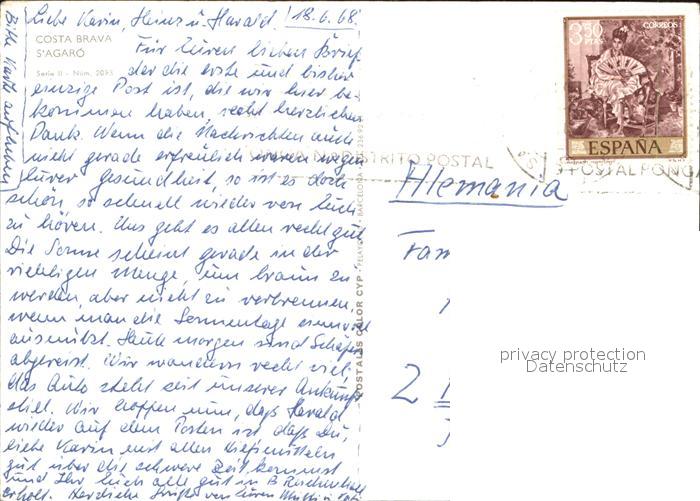 Liebe Karin, Heinz u. Harald! 18.6.68
COSTA BRAVA
S'AGARÓ
Serie II - Núm. 2095
Für Euren lieben Brief
der die erste und bisher
einzige Post ist, die wir hier be-
kommen haben, recht herzlichen
Dank. Wenn die Nachrichten auch
nicht gerade erfreulich waren wegen
Eurer Gesundheit, so ist es doch
schön, so schnell wieder von Euch
zu hören. Uns geht es allen recht gut
Die Sonne scheint gerade in der
richtigen Menge, um braun zu
werden, aber nicht zu verbrennen,
wenn man die Sonnentage sinnvoll
ausnützt. Heute morgen sind Schäfers
abgereist. Wir wandern recht viel,
das Auto steht seit unserer Ankunft
still. Wir hoffen nun, daß Harald
wieder auf dem Posten ist, daß Du,
liebe Karin mit allen
gut über die schwere Zeit kommst
und Ihr Euch alle gut in B. Reichenhall
erholt. Herzliche Grüße von Euren Mutti u. Vati
Bitte Karte aufheben
POSTALES COLOR CYP
BARCELONA
3'50
PTAS
CORREOS
ESPAÑA
DISTRITO POSTAL
POSTAL PONGA
Alemania
Fam
2
privacy protection
Datenschutz